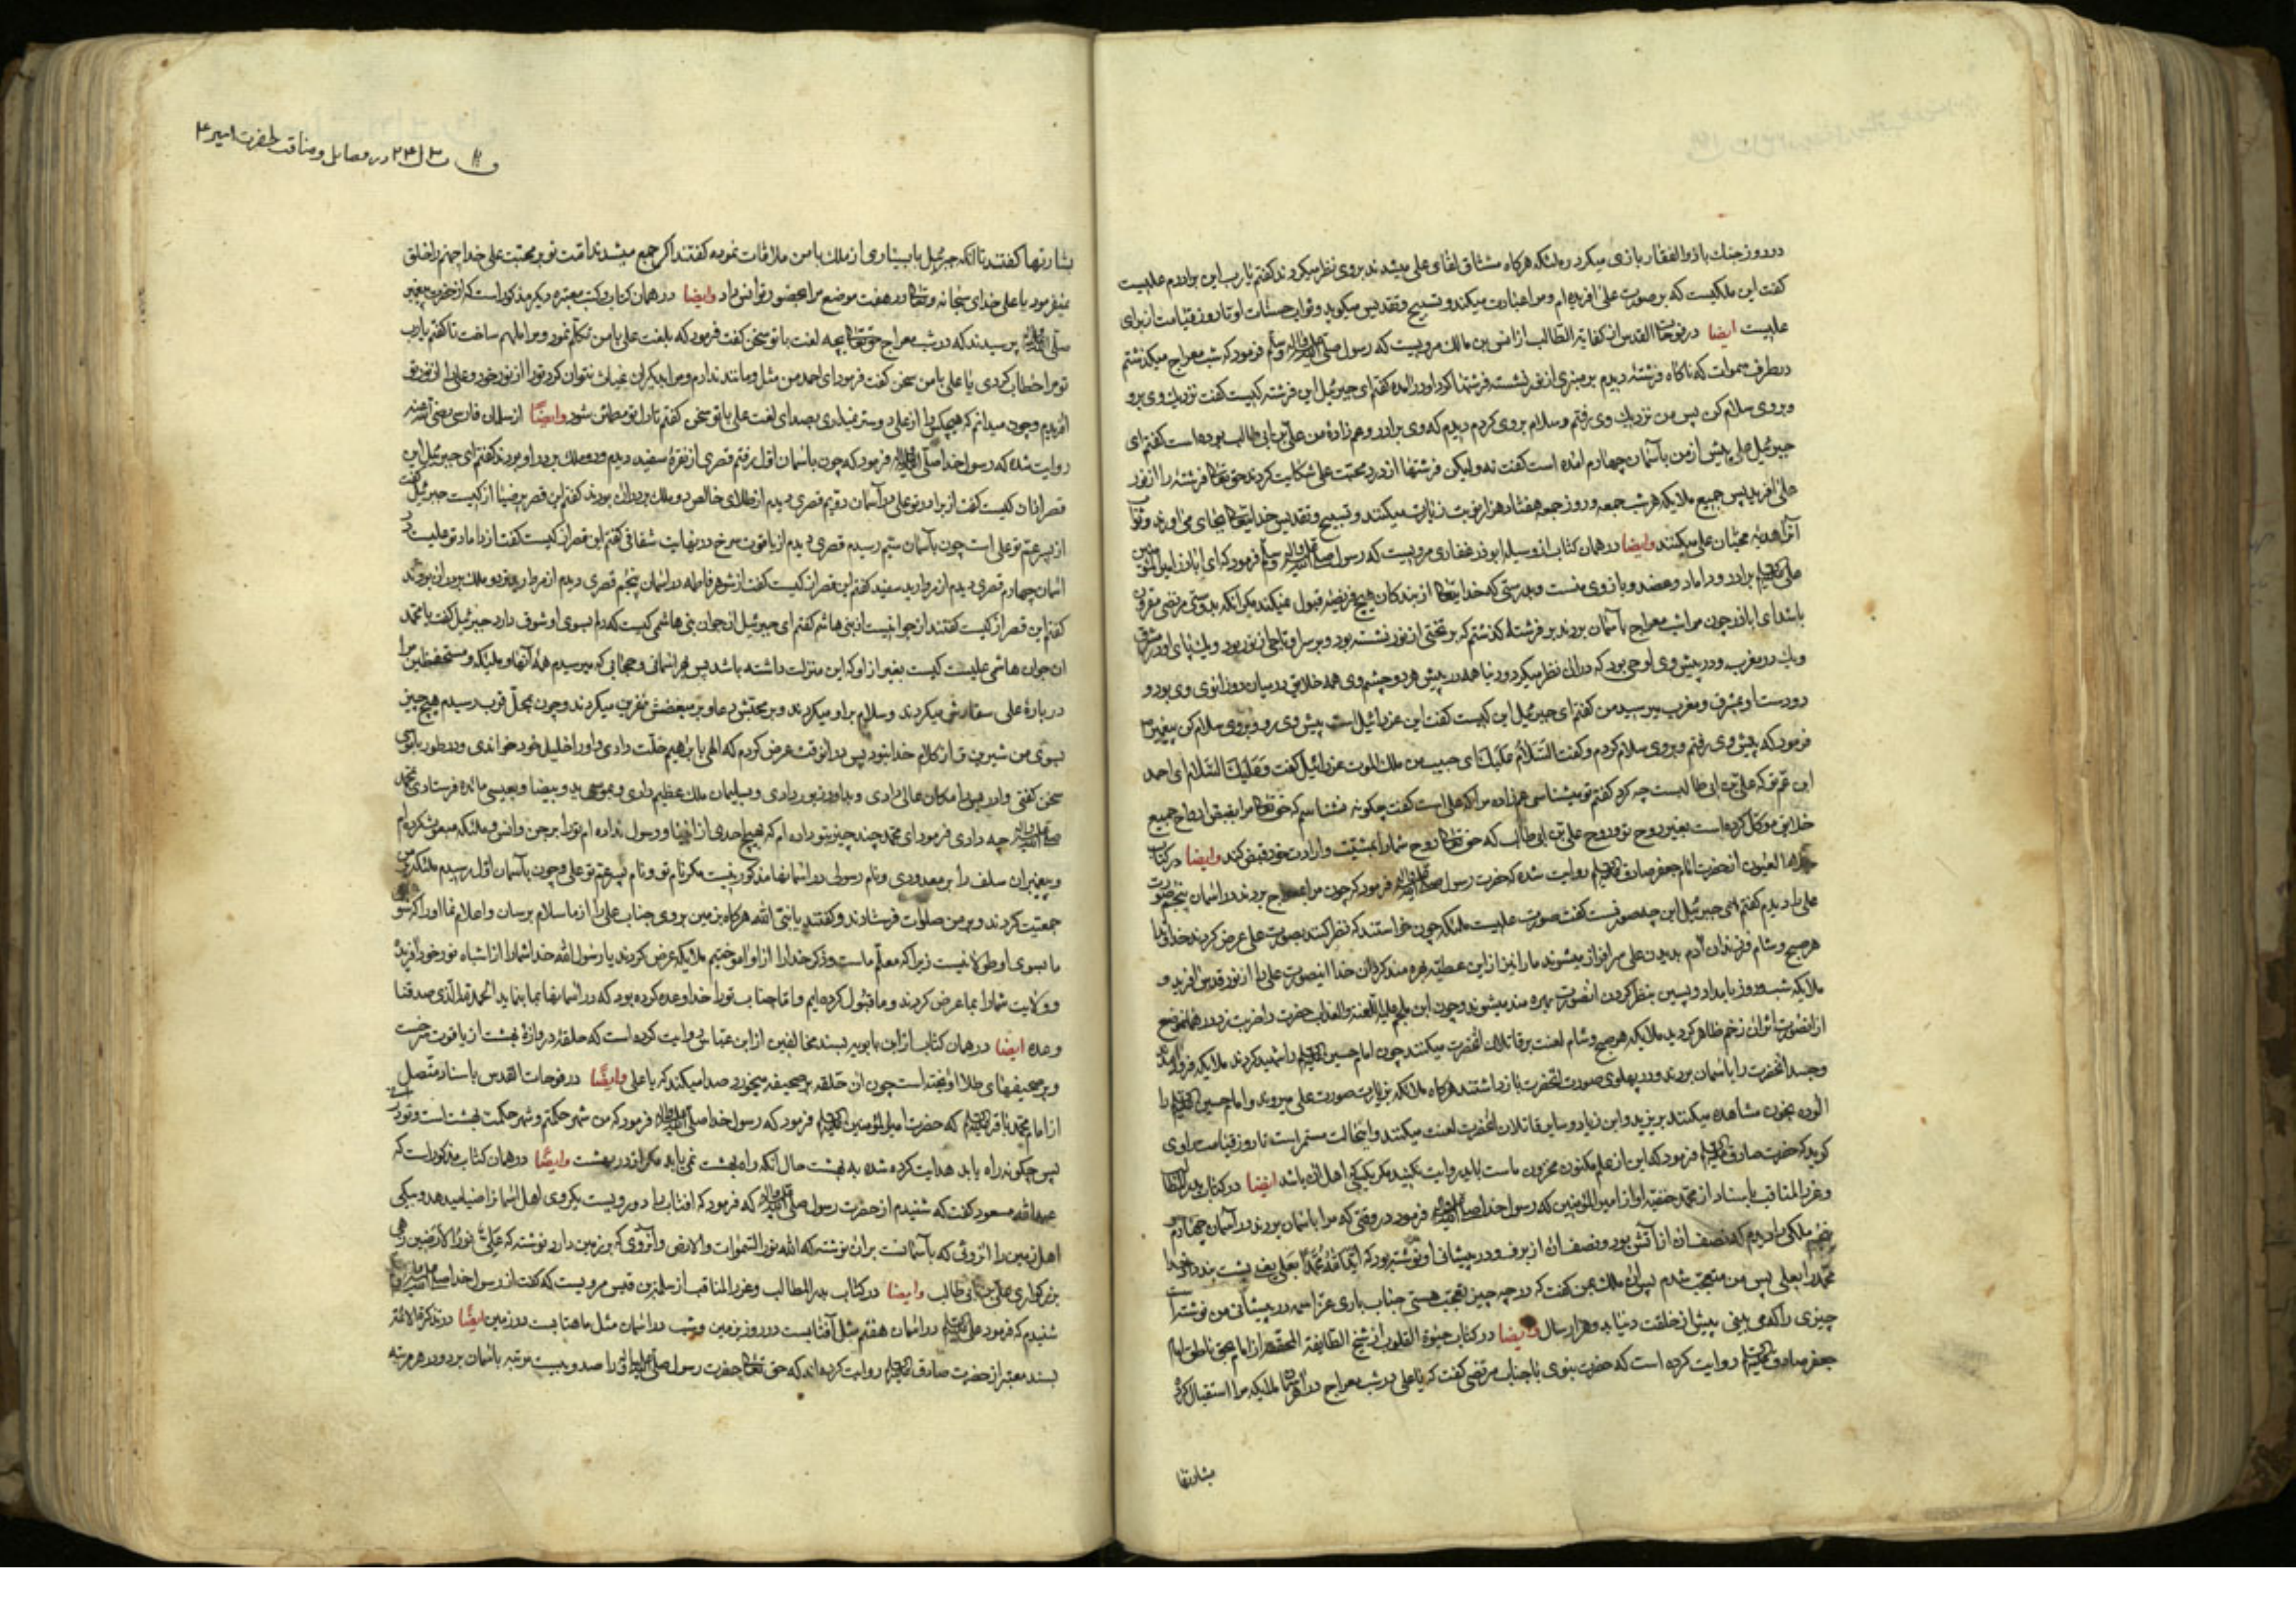 در روز جنك با ذوالفقار بازی میکرد و ملئکه هرکاه مشتاق لقای علی میشدند بروی نظر میکردند کفتم یا رب این برادرم علیست
کفت این ملکیست که بر صورت علی افریده ام و مرا عبادت میکند و تسبیح و تقدیس میکوید و ثواب حسنات او تا روز قیامت از برای
علیست ایضا در فوحات القدس از کفایة الطالب از انس بن مالك مرویست که رسول صلی الله علیه وآله وسلم فرمود که شب معراج میکذشتم
در طرف سموات که ناکاه فرشتۀ دیدم بر منبری از نور نشسته فرشتها کرد او در آمده کفتم ای جبرئیل این فرشته کیست کفت نزدیك وی برو
و بروی سلام کن پس من نزدیك وی رفتم و سلام بروی کردم دیدم که وی برادر و عم زادۀ من علی بن ابی طالب بوده است کفتم ای
جبرئیل علی پیش از من بآسمان چهارم امده است کفت نه ولیکن فرشتها از درد محبت علی شکایت کردند حق تعالی فرشته را از نور
علی افرید پس جمیع ملایکه هر شب جمعه و روز جمعه هفتاد هزار نوبت زیارت میکنند و تسبیح و تقدیس خدایتعالی بجای می اورند و ثواب
آنرا هدیۀ محبان علی میکنند وایضا در همان کتاب از وسیله ابوذر غفاری مرویست که رسول صلی الله علیه وآله وسلم فرمود که ای اباذر امیرالمؤمنین
علی برادر و داماد و عضد و بازوی منست و بدرستی که خدایتعالی از بندکان هیچ فریضه قبول نمیکند مکر انکه بدوستی مرتضی مقرون
باشد ای اباذر چون مرا شب معراج بآسمان بردند بر فرشتۀ کذشتم که بر تختی از نور نشسته بود و بر سر او تاجی از نور بود و یك پای او در مشرق
و یك در مغرب و در پیش وی لوحی بود که در ان نظر میکرد و دنیا همه در پیش هر دو چشم وی همه خلایق در میان دو زانوی وی بود و
دو دست او بمشرق و مغرب میرسید من کفتم ای جبرئیل این کیست کفت این عزرائیل است پیش وی رو و بروی سلام کن پیغمبر
فرمود که پیش وی رفتم و بروی سلام کردم و کفت السلام علیك ای حبیب من ملك الموت عزرائیل کفت و علیك السلام ای احمد
ابن عم تو که علی بن ابی طالبست چه کرد کفتم تو میشناسی عم زاده مرا که علی است کفت چکونه نشناسم که حق تعالی مرا بقبض ارواح جمیع
خلایق موکل کرده است بغیر روح تو و روح علی بن ابی طالب که حق تعالی روح شما را بمشیت و ارادت خود قبض کند وایضا در کتاب
العیون از حضرت امام جعفر صادق روایت شده که حضرت رسول فرمود که چون مرا بمعراج بردند در اسمان پنجم صورت
علی را دیدم کفتم ای جبرئیل این چه صورتست کفت صورت علیست ملئکه چون خواستند که نظر کنند بصورت علی عرض کردند خداوندا
هر صبح و شام فرزندان آدم بدیدن علی سرافراز میشوند ما را نیز از این عطیه بهره مند کردان خدا اینصورت علی را از نور قدس افرید و
ملایکه شب و روز بامداد و پسین بنظر کردن انصورت بهره مند میشوند و چون ابن ملجم علیه اللعنه و العذاب حضرت را ضربت زد در همانموضع
از انصورت اثر ان زخم ظاهر کردید ملایکه هر صبح و شام لعنت بر قاتلان انحضرت میکنند چون امام حسین را شهید کردند ملایکه فرود آمدند
و جسد انحضرت را باسمان بردند و در پهلوی صورت انحضرت باز داشتند هرکاه ملائکه بزیارت صورت علی میروند و امام حسین را
الوده بخون مشاهده میکنند بر یزید و ابن زیاد و سایر قاتلان انحضرت لعنت میکنند و اینحالت مستمر است تا روز قیامت راوی
کوید که حضرت صادق فرمود که این از علم مکنون مخزون ماست باید روایت نکنید مکر بکسی که اهل ان باشد ایضا در کتاب بدر المطالب
و غرر المناقب باسناد از محمد حنفیه او از امیر المؤمنین که رسول خدا فرمود در وقتی که مرا باسمان بردند در آسمان چهارم
ملکی را دیدم که نصف ان از آتش بود و نصف ان از برف و در پیشانی او نوشته بود که اید الله محمدا بعلی یعنی پشت بند داد خدا
محمد را بعلی پس من متعجب شدم پس ان ملك بمن کفت که در چه چیز تعجب هستی جناب باری عز اسمه در پیشانی من نوشته است
چیزی را که می بینی پیش از خلقت دنیا بدو هزار سال وایضا در کتاب حیوة القلوب از شیخ الطایفة المحقه از امام بحق ناطق امام
جعفر صادق روایت کرده است که حضرت نبوی با جناب مرتضی کفت که یا علی در شب معراج در هر اسمان ملایکه مرا استقبال کرد
بشارتها
در فضایل و مناقب حضرت امیر ع
بشارتها کفتند تا انکه جبرئیل با بسیاری از ملك با من ملاقات نموده کفتند اکر جمع میشدند امت تو بر محبت علی خدا جهنم را خلق
نمیفرمود یا علی خدای سبحانه و تعالی در هفت موضع مرا بحضور تو انس داد وایضا در همان کتاب و کتب معتبره دیکر مذکور است که از حضرت پیغمبر
پرسیدند که در شب معراج حق تعالی بچه لغت با تو سخن کفت فرمود که بلغت علی با من تکلم نمود و مرا ملهم ساخت تا کفتم یا رب
تو مرا خطاب کردی یا علی با من سخن کفت فرمود ای احمد من مثل و مانند ندارم و مرا بدیکران قیاس نتوان کرد تو را از نور خود و علی را از نور تو
افریدم و چون میدانم که هیچکس را از علی دوستر نمیداری بصدای لغت علی با تو سخن کفتم تا دل تو مطمئن شود وایضا از سلمان فارسی رضی الله عنه
روایت شده که رسول خدا فرمود که چون باسمان اول رفتم قصری از نقرۀ سفید دیدم و دو ملك بر در او بودند کفتم ای جبرئیل این
قصر از ان کیست کفت از برادر تو علی در آسمان دویم قصری دیدم از طلای خالص دو ملك بر در ان بودند کفتم این قصر پر ضیا از کیست جبرئیل کفت
از پسر عم تو علی است چون بآسمان سیم رسیدم قصری دیدم از یاقوت سرخ در نهایت شفافی کفتم این قصر از کیست کفت از داماد تو علیست در
اسمان چهارم قصری دیدم از مروارید سفید کفتم این قصر از کیست کفت از شوهر فاطمه در اسمان پنجم قصری دیدم از مروارید زرد دو ملك بر در ان بودند
کفتم این قصر از کیست کفتند از جوانیست از بنی هاشم کفتم ای جبرئیل از جوان بنی هاشمی کیست که دلم بسوی او شوق دارد جبرئیل کفت یا محمد
ان جوان هاشمی علیست کیست بغیر از او که این منزلت داشته باشد پس بهر اسمانی و حجابی که میرسیدم همۀ آنها و ملیکه و مستحفظین مرا
در بارۀ علی سفارش میکردند و سلام بر او میکردند و بر محبتش دعا و بر مبغضش نفرین میکردند و چون بمحل قرب رسیدم هیچ چیز
بسوی من شیرین تر از کلام خدا نبود پس در انوقت عرض کردم که الهی بابراهیم خلت دادی و او را خلیل خود خواندی و در طور با موسی
سخن کفتی و ادریس را مکان عالی دادی و بداود زبور دادی و بسلیمان ملك عظیم دادی و بموسی ید و بیضا و بعیسی مائده فرستادی بمحمد
چه دادی فرمود ای محمد چند چیز بتو داده ام که بهیچ احدی از انبیا و رسول نداده ام تو را بر جن و انس و ملئکه مبعوث کرده ام
و پیغمبران سلف را بر معدودی و نام رسولی در اسمانها مذکور نیست مکر نام تو و نام پسر عم تو علی و چون بآسمان اول رسیدم ملئکه بر من
جمعیت کردند و بر من صلوات فرستادند و کفتند یا نبی الله هرکاه بزمین بروی جناب علی را از ما سلام برسان و اعلام نما او را که شوق
ما بسوی او طولانیست زیرا که معلم ماست و ذکر خدا را از او آموختیم ملایکه عرض کردند یا رسول الله خدا شما را از اشباه نور خود آفریده
و ولایت شما را بما عرض کردند و ما قبول کرده ایم و اما جناب تو را خدا وعده کرده بود که در اسمانها بما بنماید الحمد لله الذی صدقنا
وعده ایضا در همان کتاب از ابن بابویه بسند مخالفین از ابن عباس روایت کرده است که حلقۀ دروازۀ بهشت از یاقوت سرخست
و بر صحیفهای طلا اویخته است چون ان حلقه بر صحیفه میخورد صدا میکند که یا علی وایضا در فوحات القدس باسناد متصل
از امام محمد باقر که حضرت امیر المؤمنین فرمود که رسول خدا فرمود که من شهر حکمتم و شهر حکمت بهشت است و تو در
پس چکونه راه یابد هدایت کرده شده به بهشت حال آنکه راه بهشت نمی یابد مکر از در بهشت وایضا در همان کتاب مذکور است که
عبد الله مسعود کفت که شنیدم از حضرت رسول که فرمود که افتاب را دو رویست بیکروی اهل اسما را ضیا میدهد و بیکی
اهل زمین را انروئی که بآسمانست بران نوشته که الله نور السموات والارض و انروی که بزمین دارد نوشته که علی نور الارضین
بزرکواری علی بن ابی طالب وایضا در کتاب بدر المطالب و غرر المناقب از سلیم بن قیس مرویست که کفت از رسول خدا
شنیدم که فرمود علی در اسمان هفتم مثل آفتابست در روز بزمین و شب در اسمان مثل ماهتابست در زمین ایضا در تذکرة الائمه
بسند معتبر از حضرت صادق روایت کرده اند که حق تعالی حضرت رسول را صد و بیست مرتبه باسمان برد و در هر مرتبه